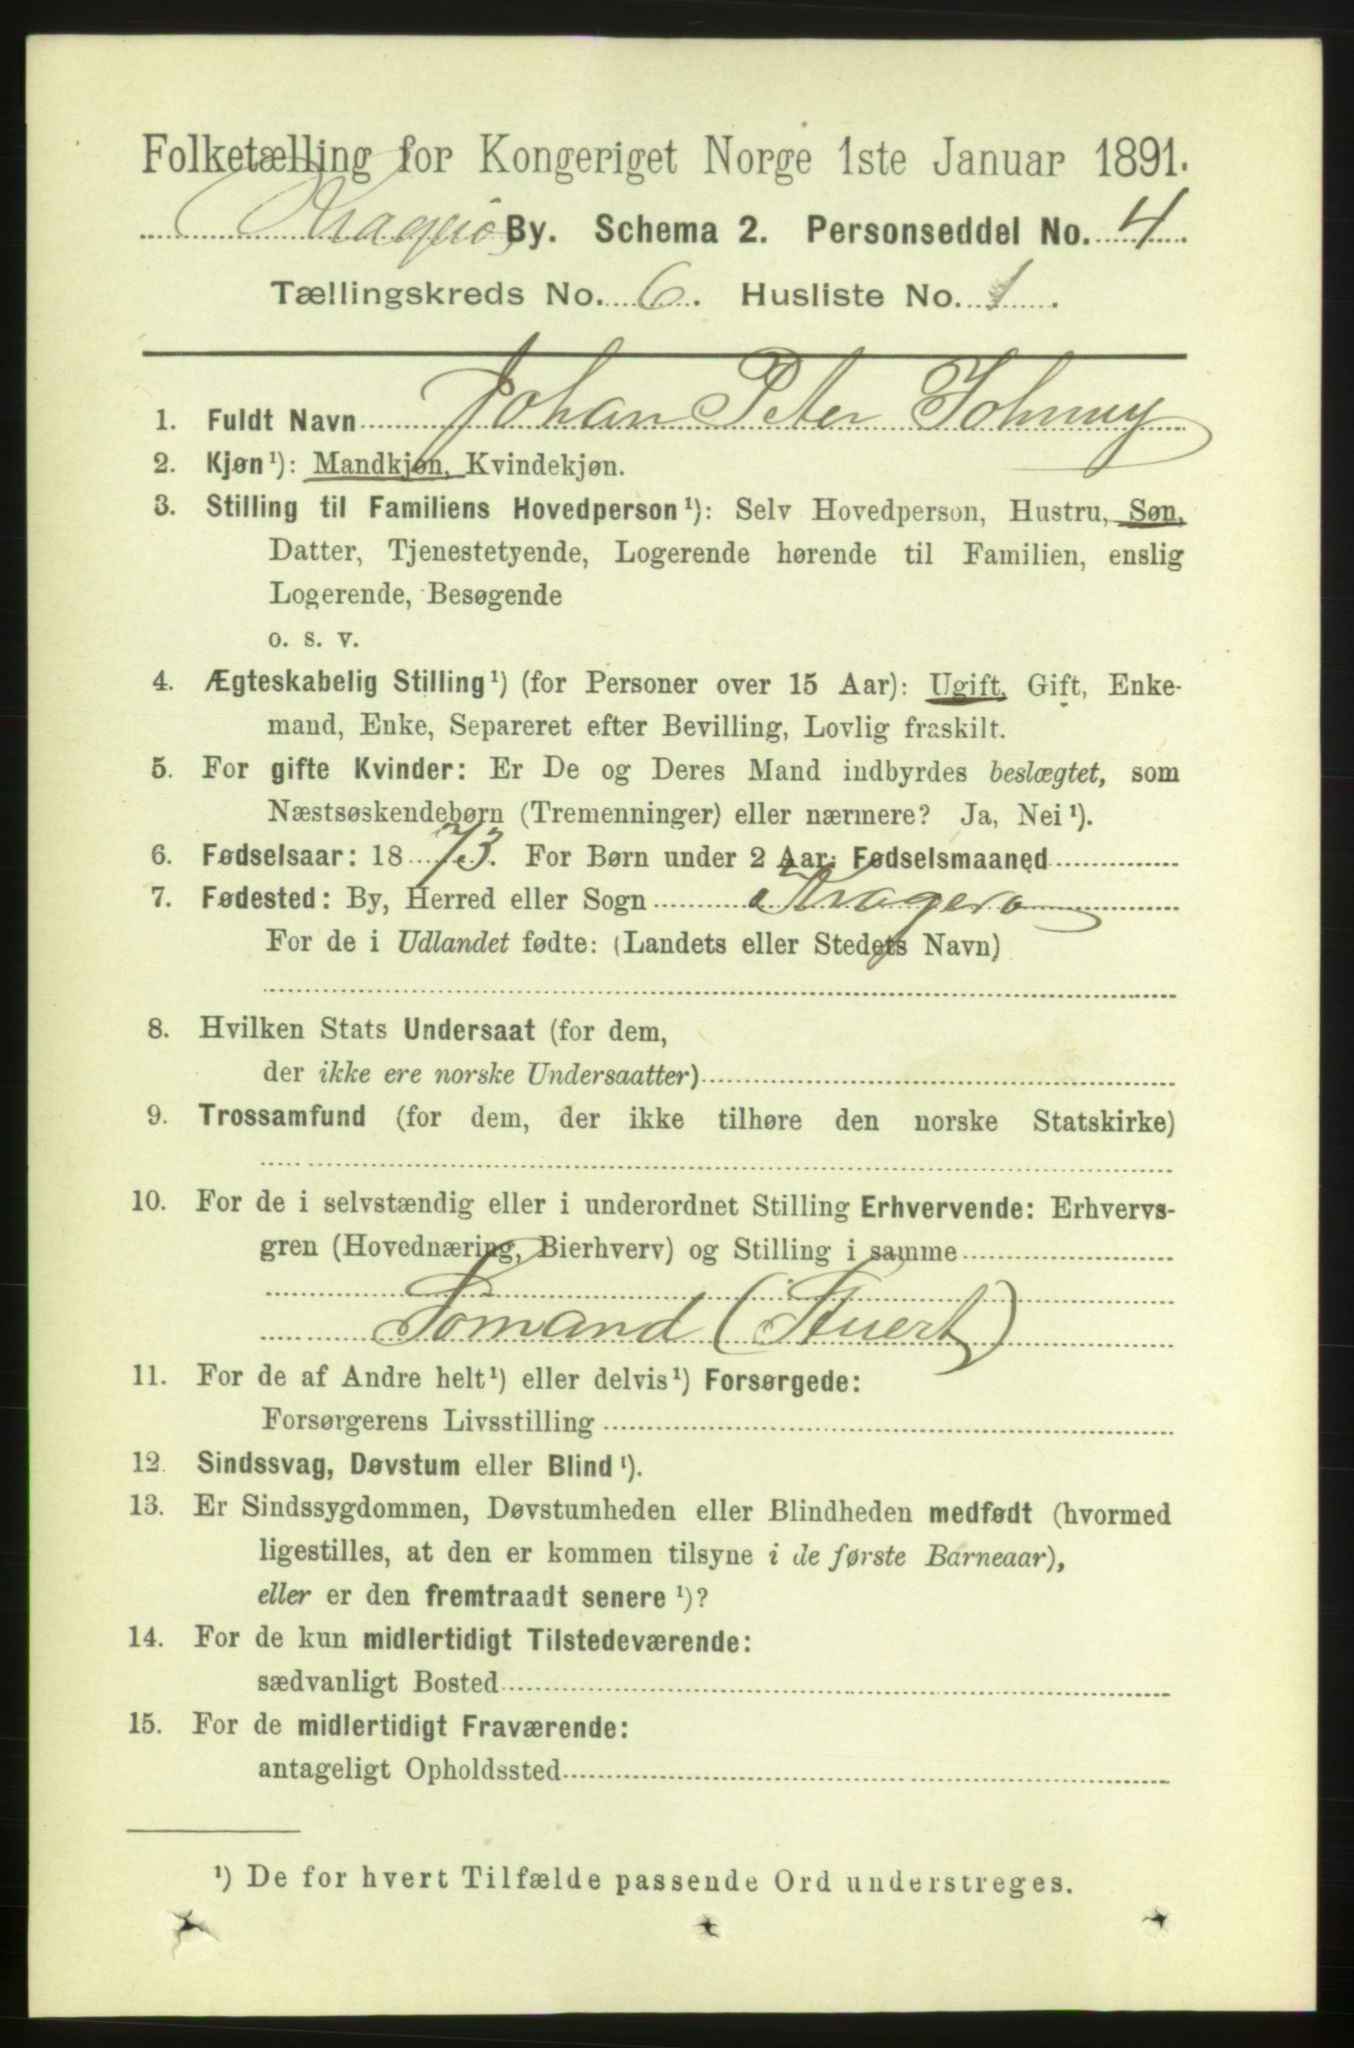 Folketælling for Kongeriget Norge 1ste Januar 1891.
Kragerø By. Schema 2. Personseddel No. 4.
Tællingskreds No. 6. Husliste No. 1.
1. Fuldt Navn Johan Peter Johnny
2. Kjøn¹): Mandkjøn, Kvindekjøn.
3. Stilling til Familiens Hovedperson¹): Selv Hovedperson, Hustru, Søn,
Datter, Tjenestetyende, Logerende hørende til Familien, enslig
Logerende, Besøgende
o. s. v.
4. Ægteskabelig Stilling¹) (for Personer over 15 Aar): Ugift, Gift, Enke-
mand, Enke, Separeret efter Bevilling, Lovlig fraskilt.
5. For gifte Kvinder: Er De og Deres Mand indbyrdes beslægtet, som
Næstsøskendebørn (Tremenninger) eller nærmere? Ja, Nei¹).
6. Fødselsaar: 1873. For Børn under 2 Aar: Fødselsmaaned
7. Fødested: By, Herred eller Sogn Kragerø
For de i Udlandet fødte: (Landets eller Stedets Navn)
8. Hvilken Stats Undersaat (for dem,
der ikke ere norske Undersaatter)
9. Trossamfund (for dem, der ikke tilhøre den norske Statskirke)
10. For de i selvstændig eller i underordnet Stilling Erhvervende: Erhvervs-
gren (Hovednæring, Bierhverv) og Stilling i samme
Sømand (Stuert)
11. For de af Andre helt¹) eller delvis¹) Forsørgede:
Forsørgerens Livsstilling
12. Sindssvag, Døvstum eller Blind¹).
13. Er Sindssygdommen, Døvstumheden eller Blindheden medfødt (hvormed
ligestilles, at den er kommen tilsyne i de første Barneaar),
eller er den fremtraadt senere¹)?
14. For de kun midlertidigt Tilstedeværende:
sædvanligt Bosted
15. For de midlertidigt Fraværende:
antageligt Opholdssted
¹) De for hvert Tilfælde passende Ord understreges.